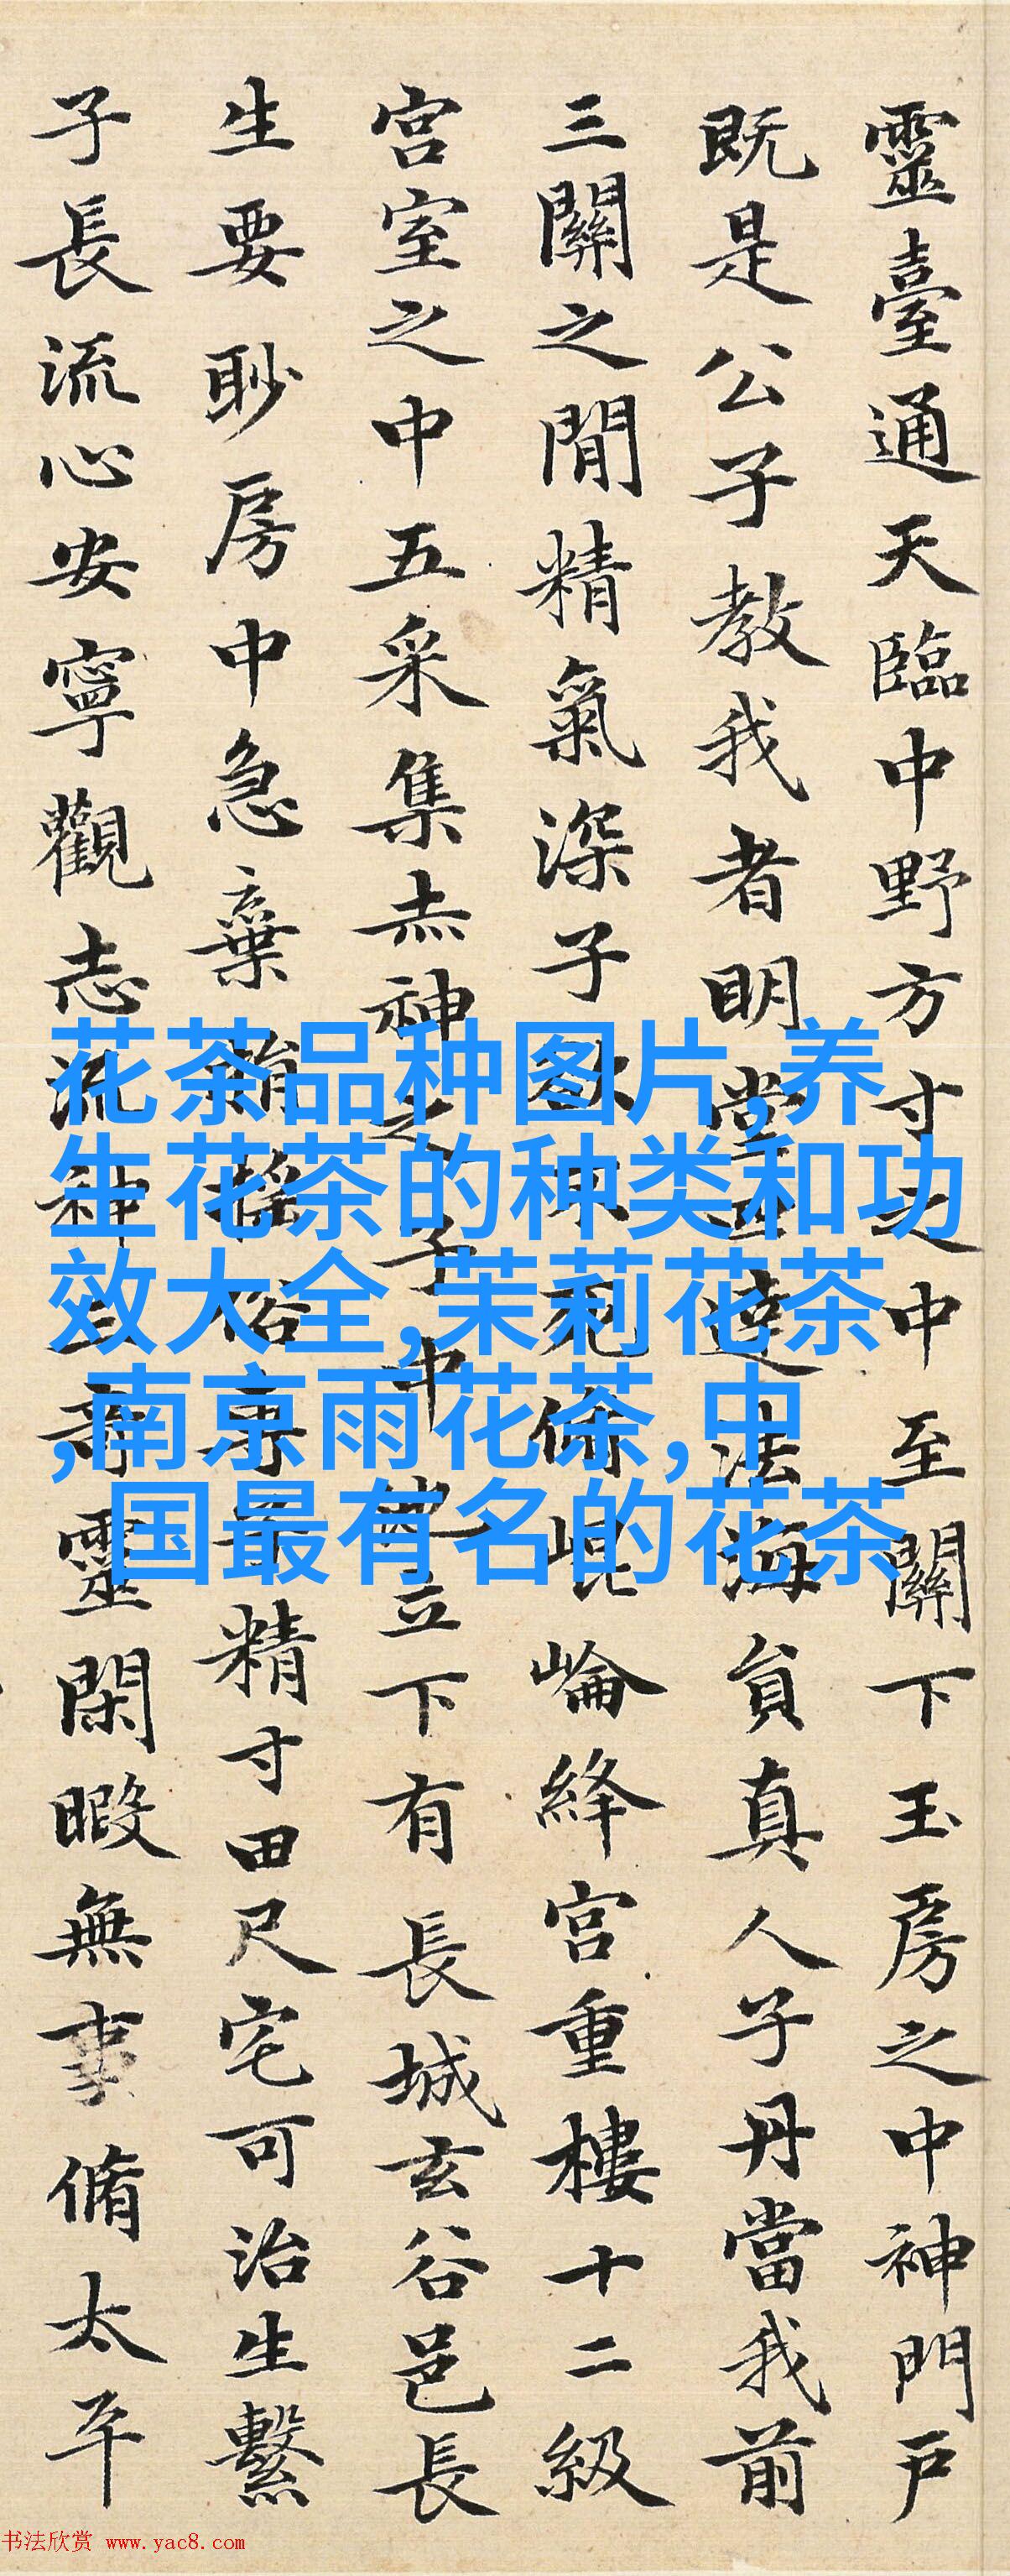 靈臺通天臨中野方寸之中至關下玉房之中神門戶
既是公子教我者明堂四達法海員真人子丹當我前
三關之閒精氣深子欲不死脩崐崘絳宮重樓十二級
宮室之中五采集赤神之子中池立下有長城玄谷邑長
生要眇房中急棄捐搖俗專子精寸田尺宅可治生繫
子長流心安寧觀志流神三奇靈閑暇無事脩太平
花茶品种图片,养
生花茶的种类和功
效大全,茉莉花茶
,南京雨花茶,中
国最有名的花茶
书法欣赏 www.yac8.com